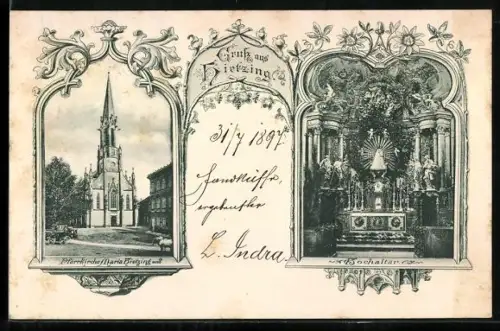 Gruss aus
Hietzing
31/7 1897
Handküsse,
L. Indra.
Pfarrkirche Maria Hietzing
Hochaltar